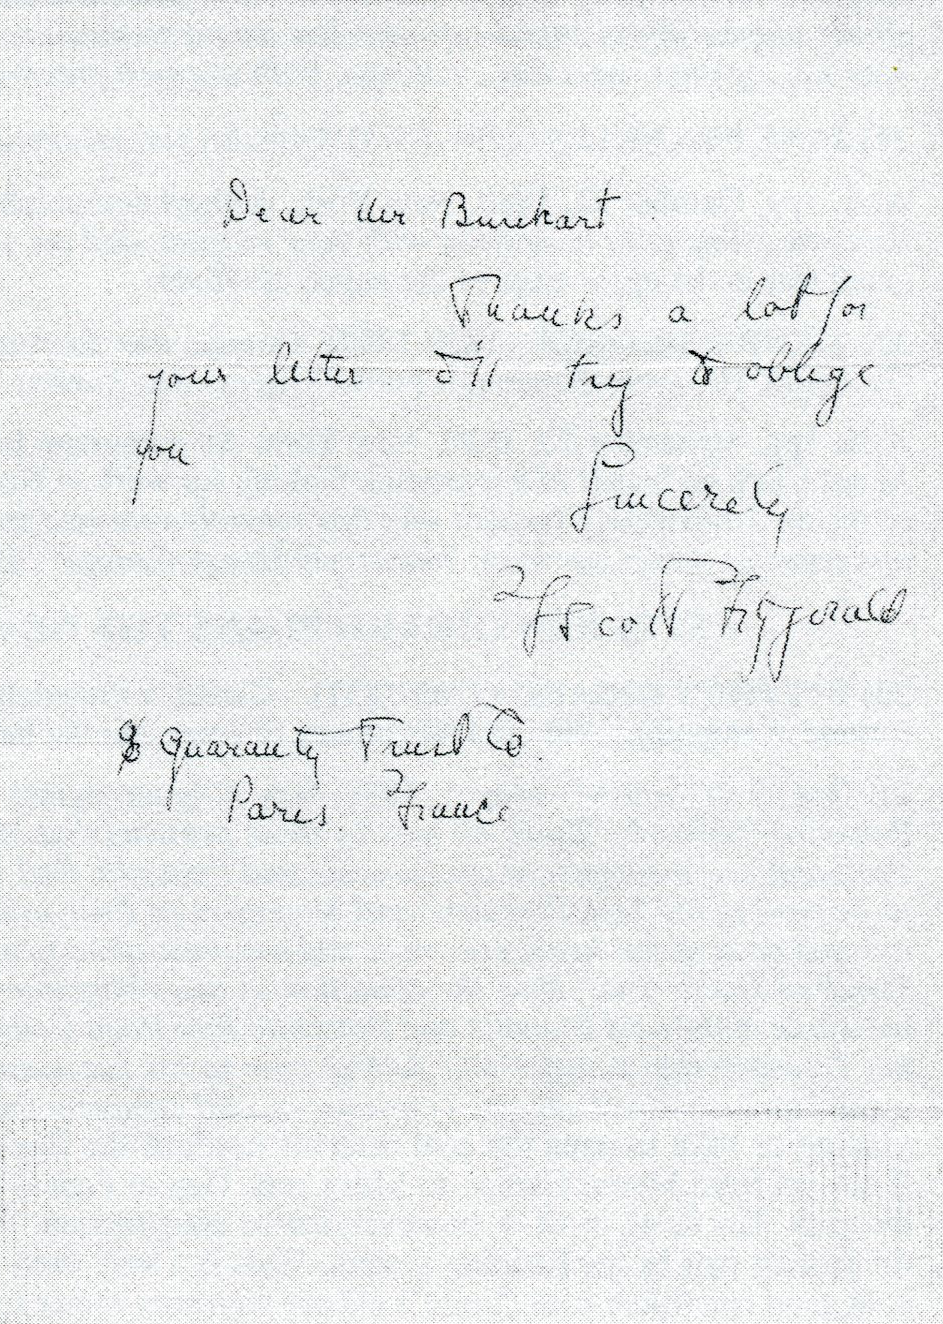 Dear Mr Burkhart
Thanks a lot for
your letter. I'll try to oblige
you
Sincerely
F Scott Fitzgerald
% Guaranty Trust Co.
Paris. France